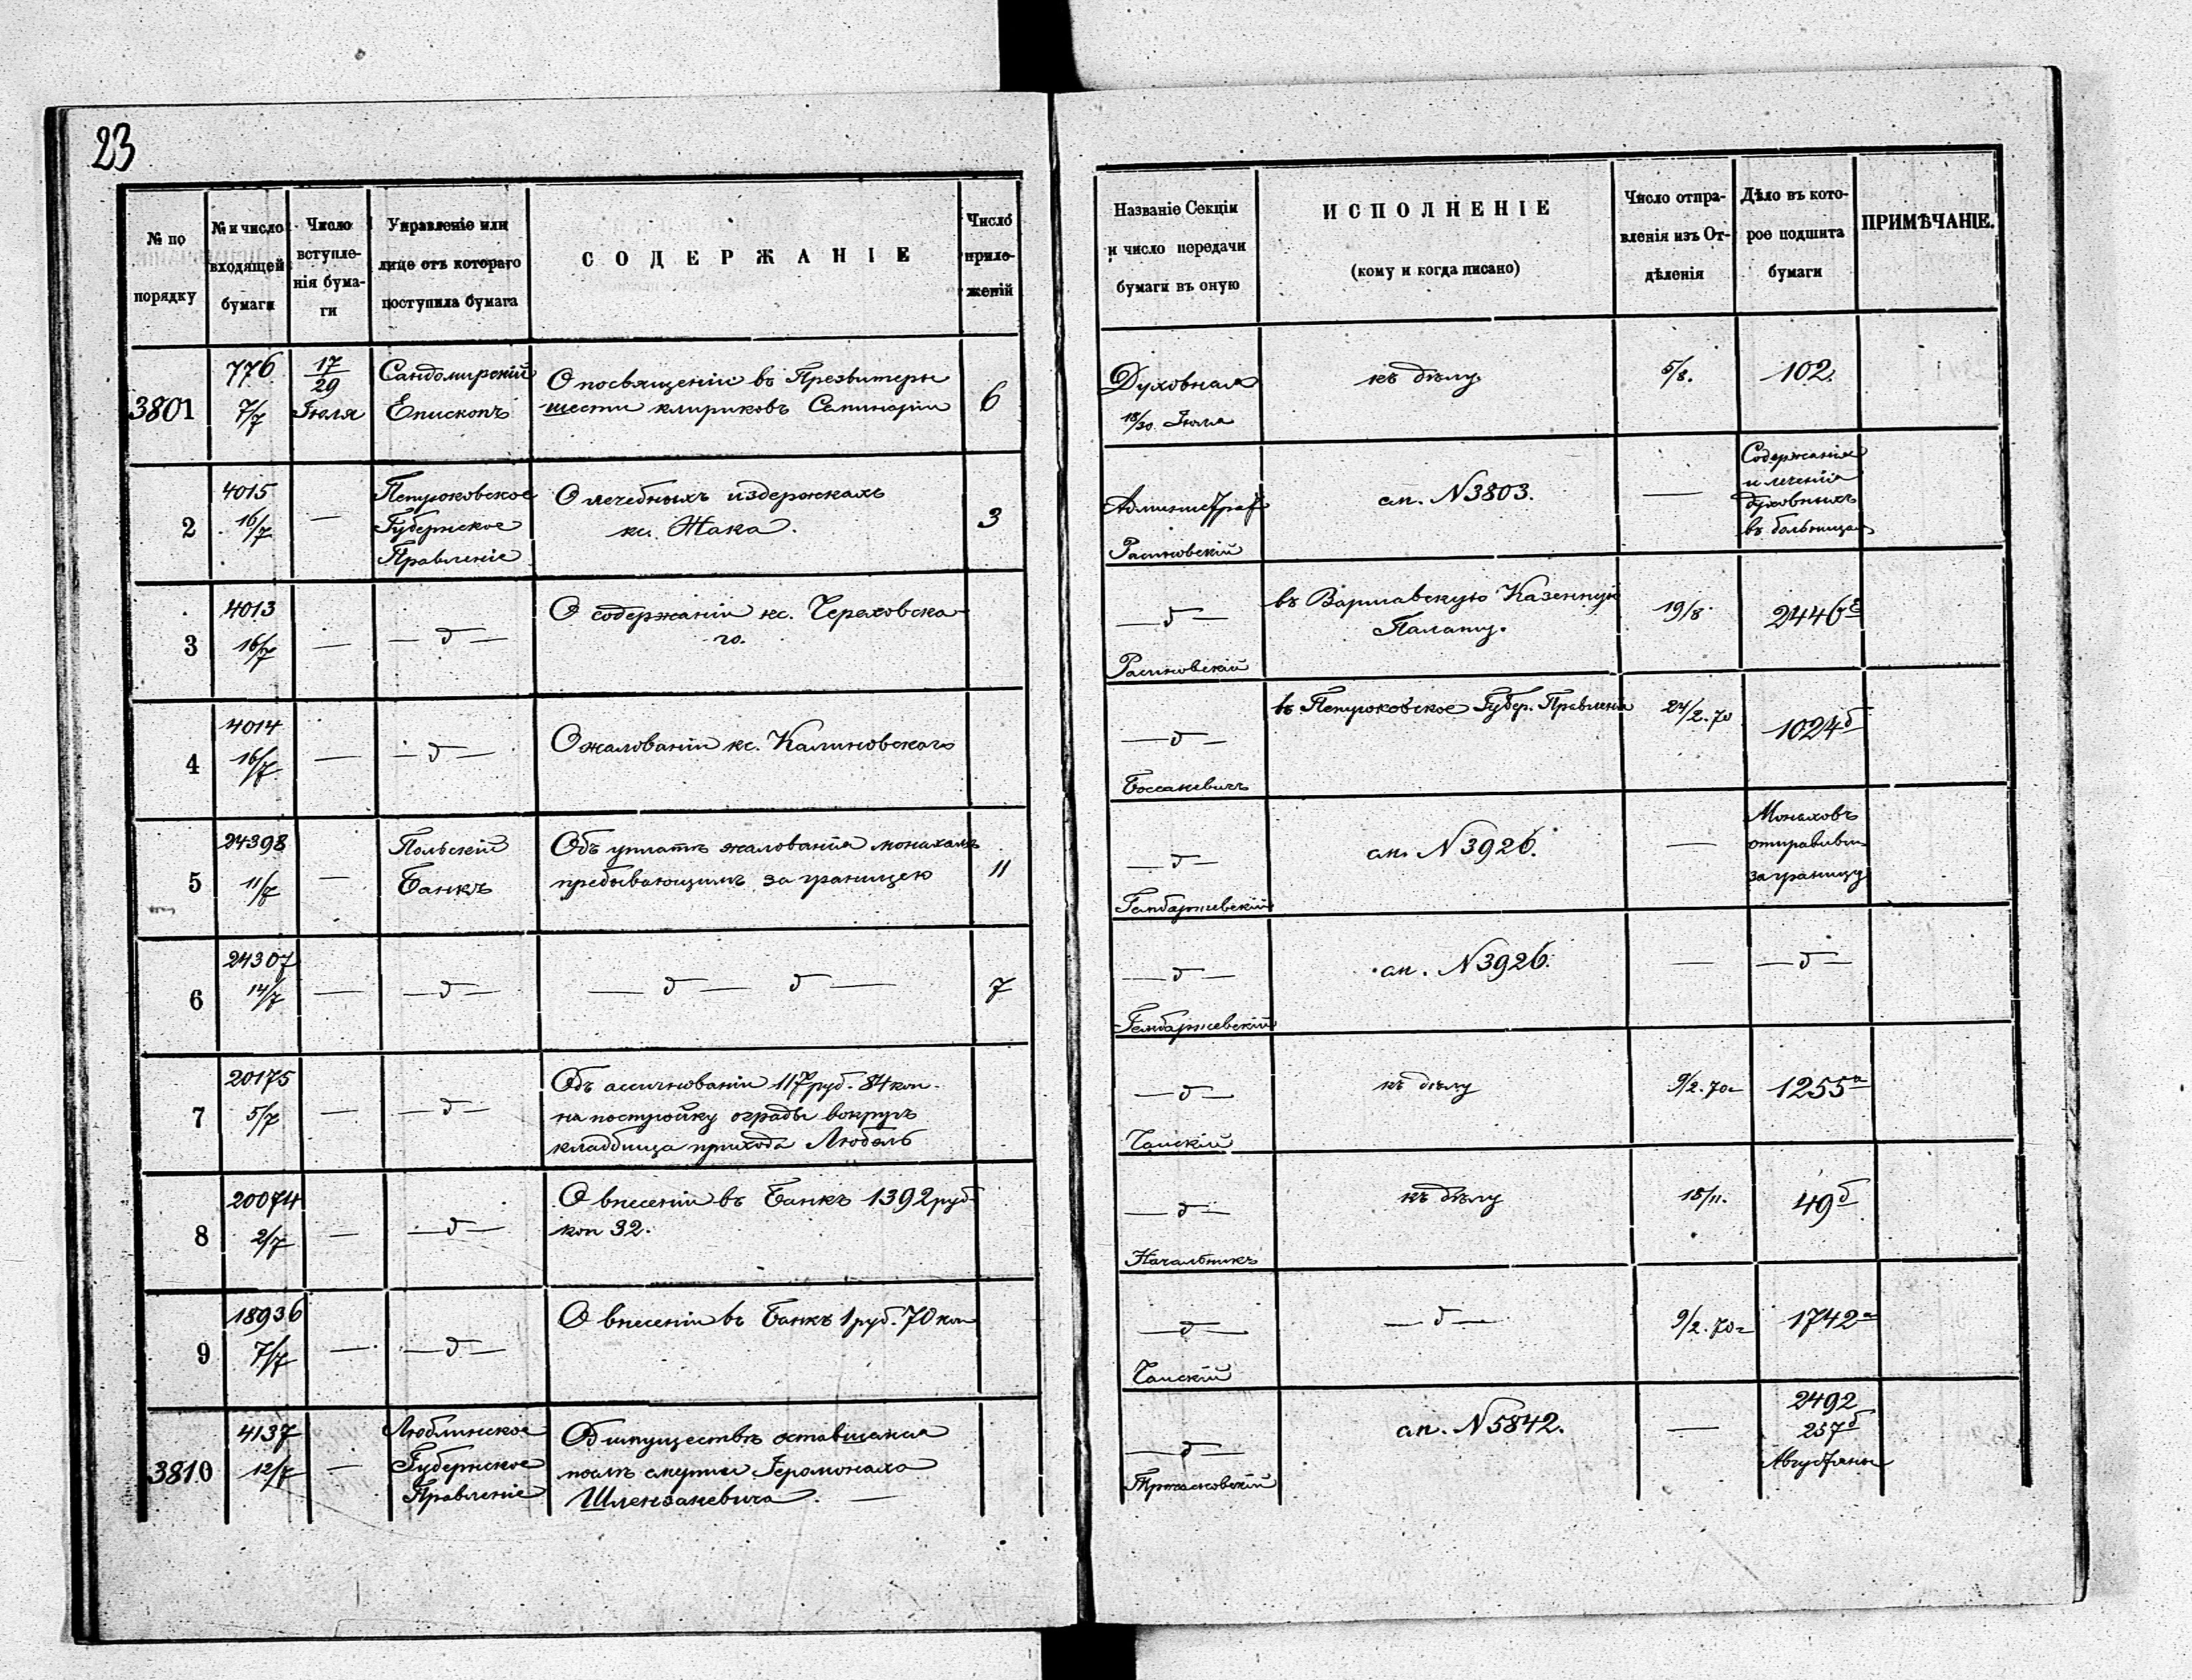 23
№ по порядку
№ и число входящей бумаги
Число вступле-нія бума-ги
Управленіе или лице отъ котораго поступила бумага
СОДЕРЖАНІЕ
Число прило-женій
Названіе Секціи и число передачи бумаги въ оную
ИСПОЛНЕНІЕ
(кому и когда писано)
Число отпра-вленія изъ От-дѣленія
Дѣло въ кото-рое подшита бумаги
ПРИМѢЧАНІЕ.
3801
776 7/7
17/29 Іюля
Сандомирскій Епископъ
О посвященіи въ Презвитеры
шести клириковъ Семинаріи
6
Духовная
18/30 Іюля
къ дѣлу
5/8.
102.
2
4015 16/7
—
Петроковское
Губернское
Правленіе
О лечебныхъ издержкахъ
кс. Жака.
3
Администрат
Расиновскій
см. N 3803.
—
Содержанія
и леченія
духовныхъ
въ больницах
3
4013 16/7
—
— д —
О содержаніи кс. Чераховска
го.
— д —
Расиновскій
въ Варшавскую Казенную
Палату.
19/8
2446
4
4014 16/7
—
— д —
О жалованіи кс. Калиновскаго
— д —
въ Петроковское Губер. Правленіе
24/2. 70
1024б
5
24398 11/7
—
Польскій
Банкъ
Объ уплатѣ жалованія монахамъ
пребывающимъ за границею
11
— д —
Гембаржевскій
см. N 3926.
—
Монаховъ
отправивш
за границу
6
24307 14/7
—
— д —
— д — д —
7
— д —
Гембаржевскій
см. N 3926.
—
— д —
7
20175 5/7
—
— д —
Объ ассигнованіи 117 руб. 84 коп.
на постройку ограды вокругъ
кладбища прихода Любель
— д —
къ дѣлу
9/2. 70
1255а
8
20074 2/7
—
— д —
О внесеніи въ Банкъ 1392 руб
коп 32.
— д —
Начальникъ
къ дѣлу
15/11.
49б
9
18936 7/7
—
— д —
О внесеніи въ Банкъ 1 руб. 70 коп
— д —
— д —
9/2. 70
1742а
3810
4137 12/7
—
Люблинское
Губернское
Правленіе
Объ имуществѣ оставшемся
послѣ смерти Іеромонаха
Шлензакевича. —
— д —
Тржасковскій
см. N 5842.
—
2492
257б
Августяны